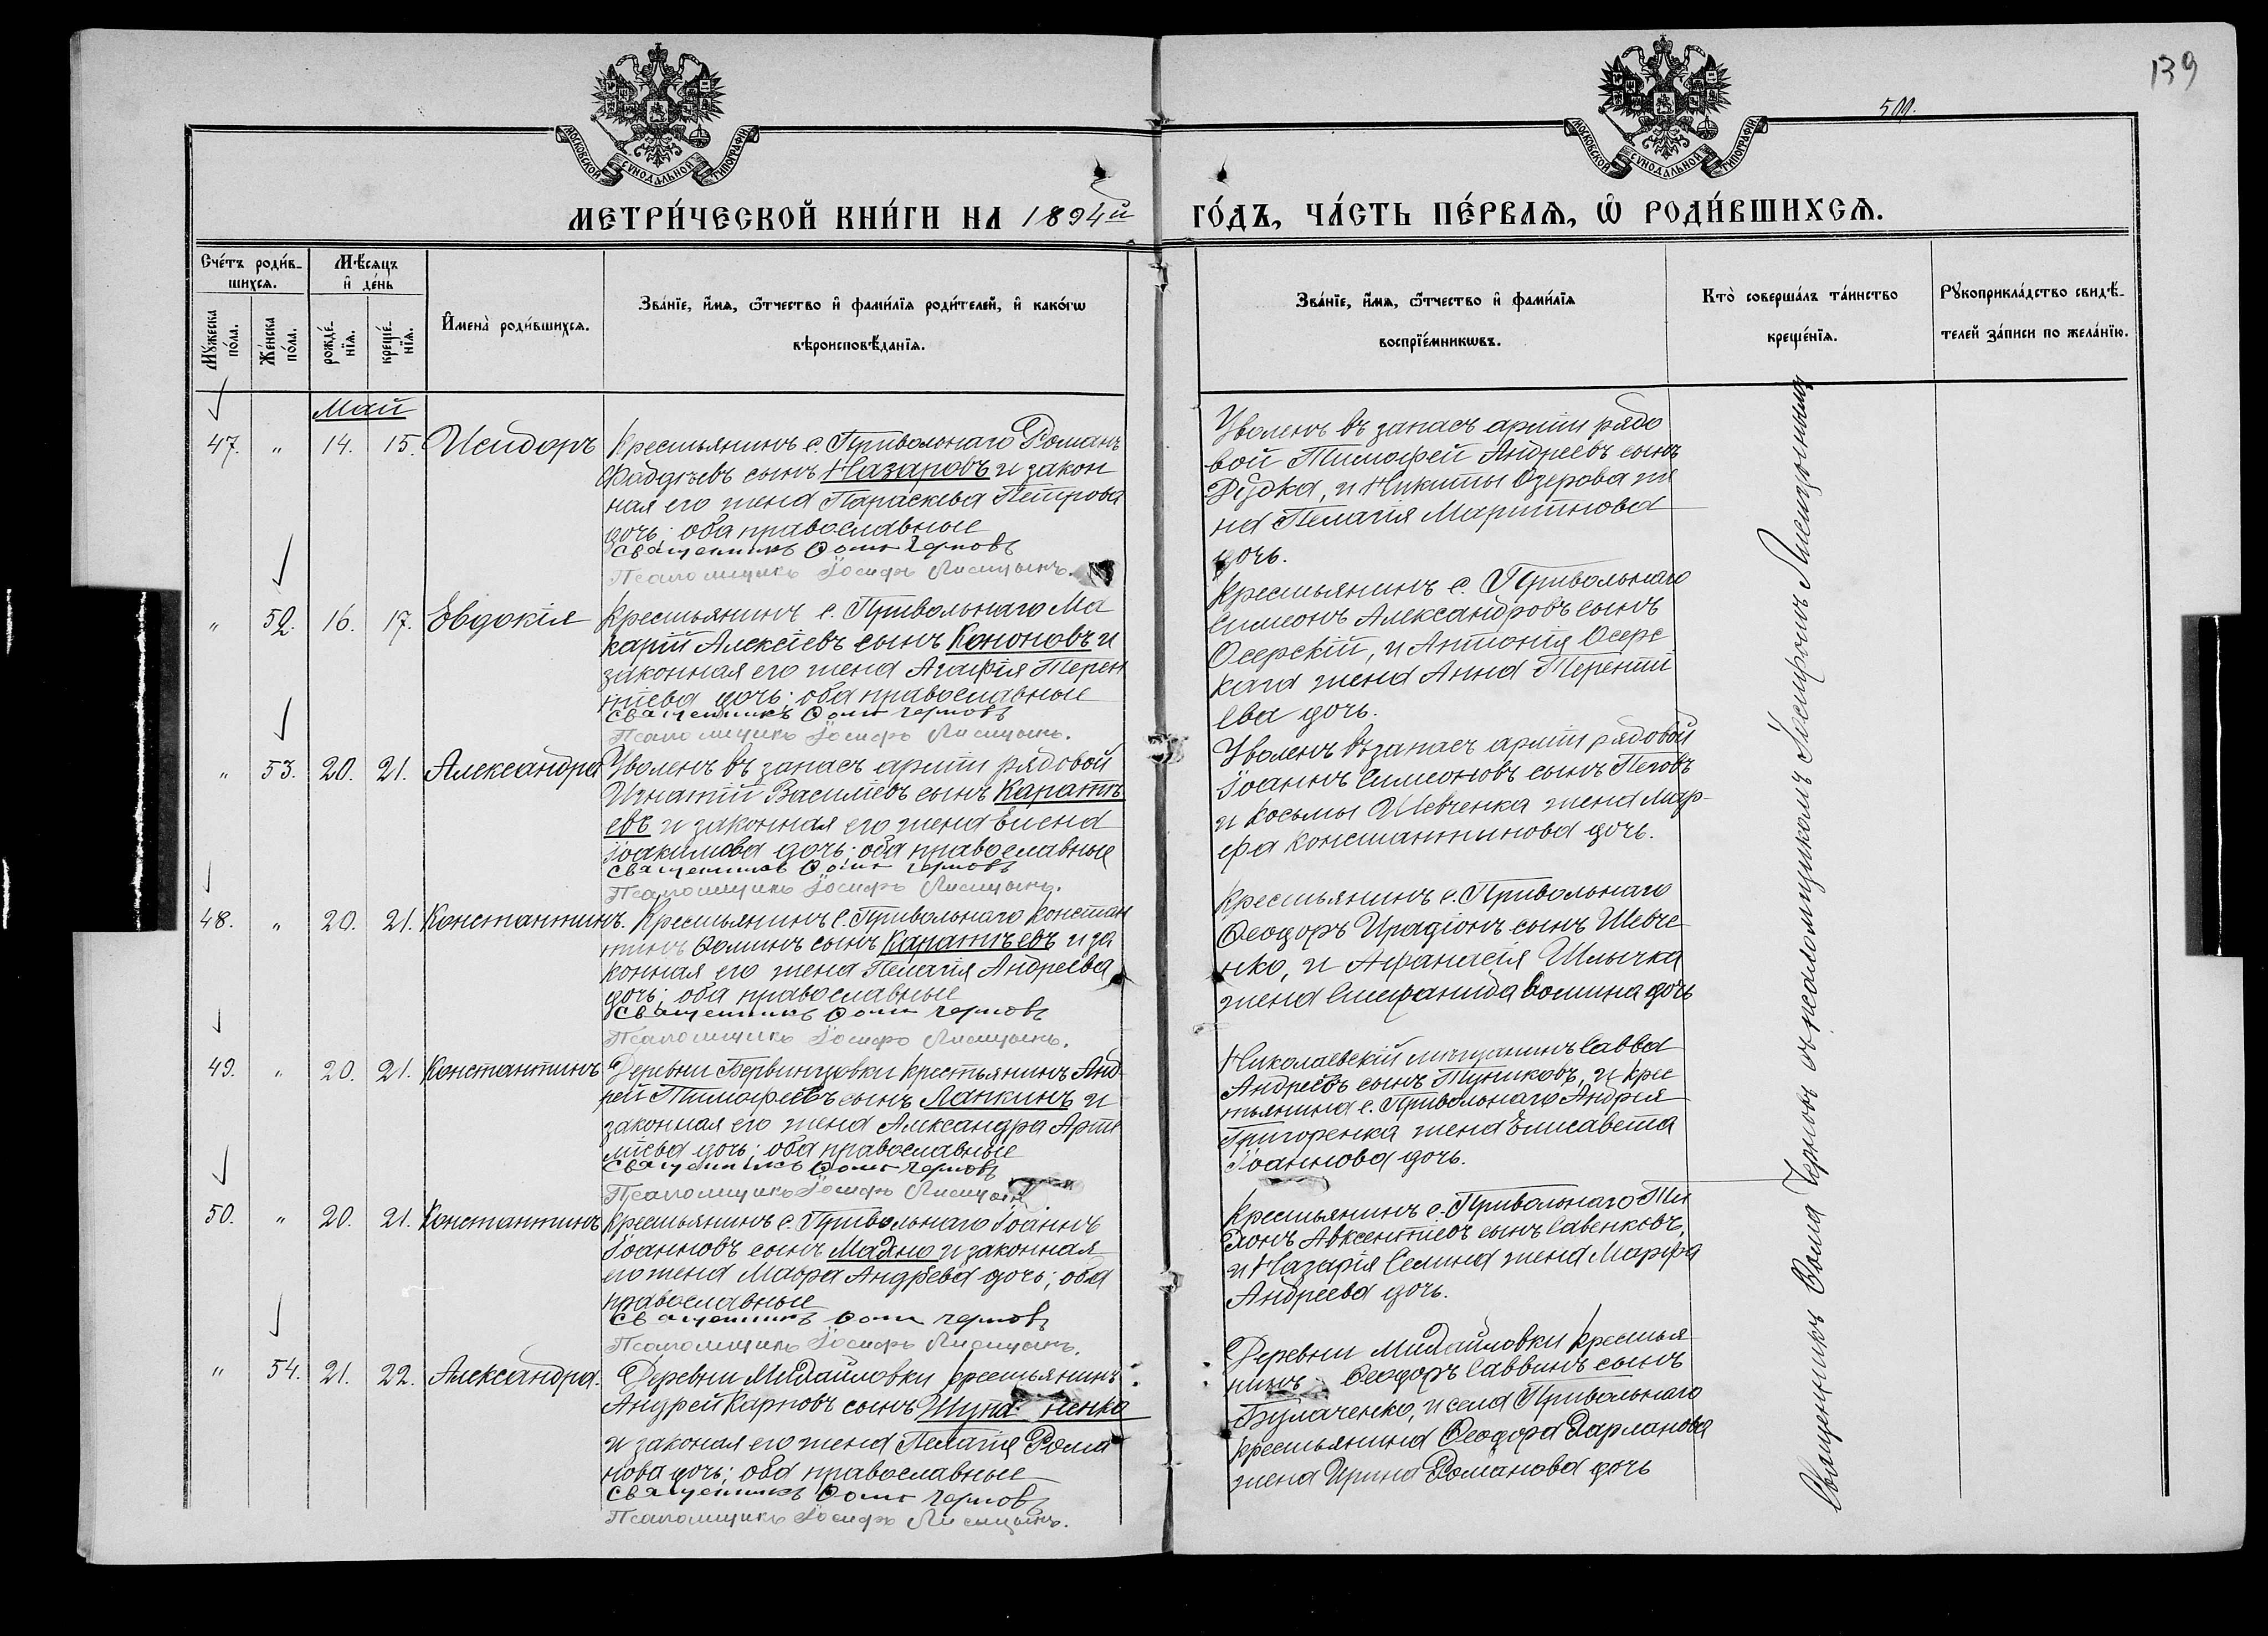 139
511.
МОСКОВСКОЙ СѴНОДАЛЬНОЙ ТИПОГРАФІИ
МОСКОВСКОЙ СѴНОДАЛЬНОЙ ТИПОГРАФІИ
МЕТРИ́ЧЕСКОЙ КНИ́ГИ НА 1894й ГО́ДЪ, ЧА́СТЬ ПЕ́РВАѦ, Ѡ РОДИ́ВШИХСѦ.
Сче́тъ роди́в-
шихсѧ.
Мꙋжеска по́ла.
Же́нска по́ла.
Мѣ́сѧцъ
и де́нь
рожде́-
нїѧ.
креще́-
нїѧ.
И҆мена̀ роди́вшихсѧ.
Зва́нїе, и҆́мѧ, ѻ҆́тчество и҆ фами́лїѧ роди́телей, и҆ како́гѡ
вѣроисповѣ́данїѧ.
Зва́нїе, и҆́мѧ, ѻ҆́тчество и҆ фами́лїѧ
воспрїе́мникѡвъ.
Кто̀ соверша́лъ та́инство
креще́нїѧ.
Рꙋкоприкла́дство свидѣ́-
телей за́писи по жела́нїю.
Май
47. " 14. 15. Исидоръ
Крестьянинъ с. Привольнаго Романъ
Фаддѣевъ сынъ Назаровъ и закон
ная его жена Параскева Петрова
дочь; оба православные
Священникъ Ѳома Черновъ
Псаломщикъ Іосифъ Лисицынъ.
Уволенъ въ запасъ арміи рядо
вой Тимофей Андреевъ сынъ
Рудка, и Никиты Озерова же
на Пелагія Мартинова
дочь.
" 52. 16. 17. Евдокія
Крестьянинъ с. Привольнаго Ма
карій Алексіевъ сынъ Кононовъ и
законная его жена Агафія Терен
тіева дочь; оба православные
Священникъ Ѳома Черновъ
Псаломщикъ Іосифъ Лисицынъ.
Крестьянинъ с. Привольнаго
Симеонъ Александровъ сынъ
Осерскій, и Антонія Осерс
каго жена Анна Терентій
ева дочь.
" 53. 20. 21. Александра
Уволенъ въ запасъ арміи рядовой
Игнатій Василіевъ сынъ Каратѣ
евъ и законная его жена Елена
Іоакимова дочь; оба православные
Священникъ Ѳома Черновъ
Псаломщикъ Іосифъ Лисицынъ.
Уволенъ въ запасъ арміи рядовой
Іоаннъ Симеоновъ сынъ Пеговъ
и Косьмы Шевченка жена Мар-
фа Константинова дочь.
48. " 20. 21. Константинъ.
Крестьянинъ с. Привольнаго Констан
тинъ Ѳоминъ сынъ Каратѣевъ и за
конная его жена Пелагія Андреева
дочь; оба православные
Священникъ Ѳома Черновъ
Псаломщикъ Іосифъ Лисицынъ.
Крестьянинъ с. Привольнаго
Ѳеодоръ Иродіонъ сынъ Шевче
нко, и Афанасія Шлычка
жена Стефанида Ѳомина дочь
49. " 20. 21. Константинъ
Деревни Бервинцовки крестьянинъ Анд
рей Тимофеевъ сынъ Лапкинъ и
законная его жена Александра Арте
міева дочь; оба православные
Священникъ Ѳома Черновъ
Псаломщикъ Іосифъ Лисицынъ
Николаевскій мѣщанинъ Савва
Андреевъ сынъ Тупиковъ, и крес
тьянина с. Привольнаго Андрея
Григоренка жена Елисавета
Іоаннова дочь.
50. " 20. 21. Константинъ
Крестьянинъ с. Привольнаго Іоаннъ
Іоанновъ сынъ Махно и законная
его жена Мавра Андреева дочь; оба
православные
Священникъ Ѳома Черновъ
Псаломщикъ Іосифъ Лисицынъ.
Крестьянинъ с. Привольнаго Ти
хонъ Авксентіевъ сынъ Савенковъ,
и Назарія Селина жена Марфа
Андреева дочь.
" 54. 21. 22. Александра.
Деревни Михайловки крестьянинъ
Андрей Карповъ сынъ
и законая его жена Пелагія Рома
нова дочь; оба православные
Священникъ Ѳома Черновъ
Псаломщикъ Іосифъ Лисицынъ.
Деревни Михайловки крестья
нинъ Ѳеодоръ Саввинъ сынъ
Булаченко, и села Привольнаго
крестьянина Ѳеодора Харланова
жена Ирина Романова дочь
Священникъ Ѳома Черновъ съ псаломщикомъ Іосифомъ Лисицынымъ